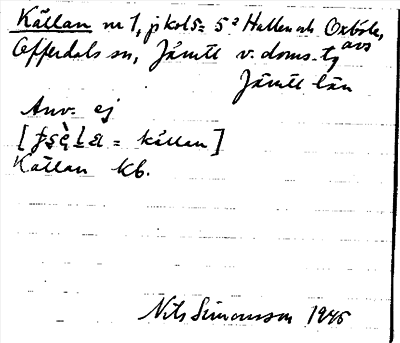 Källan nr 1, jkol 5= 5² Hallen och Oxböle, avs
Offerdals sn, Jämtl v. doms. tg
Jämtl län
Anv. ej
= källan]
Källan kb.
Nils Simonsson 1945